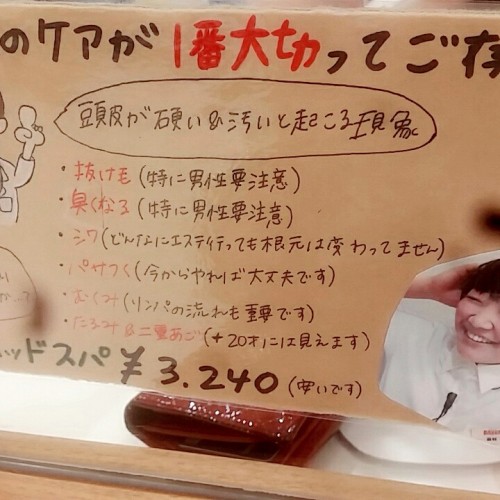 のケアが1番大切ってご存
頭皮が硬い&汚いと起こる現象
・抜け毛(特に男性要注意)
・臭くなる(特に男性要注意)
・シワ(どんなにエステ行っても根元は変わってません)
・パサつく(今からやれば大丈夫です)
・むくみ(リンパの流れも重要です)
・たるみ&二重あご(+20才には見えます)
ッドスパ ¥3.240(安いです)